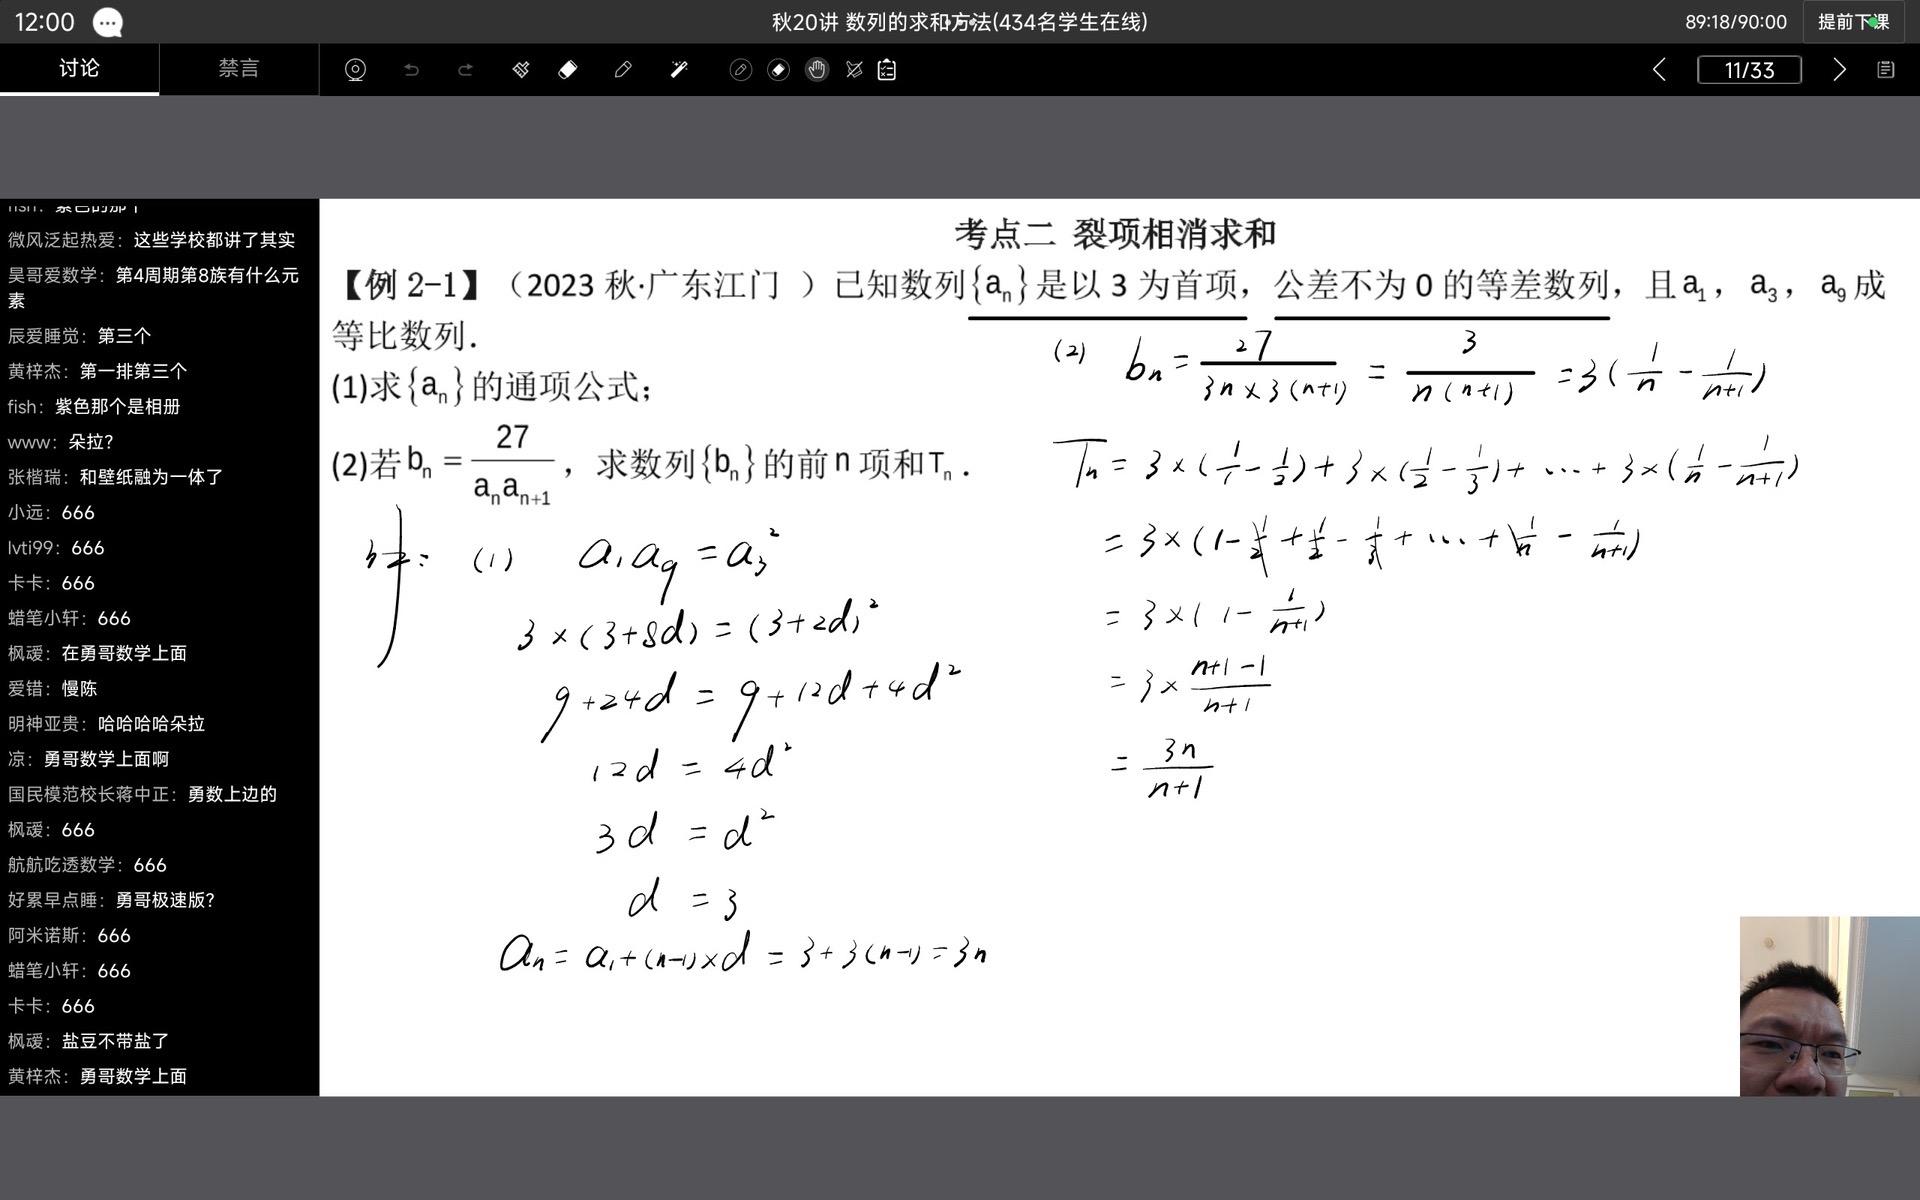 12:00
秋20讲 数列的求和方法(434名学生在线)
89:18/90:00
提前下课
讨论
禁言
11/33
微风泛起热爱：这些学校都讲了其实
昊哥爱数学：第4周期第8族有什么元
素
辰爱睡觉：第三个
黄梓杰：第一排第三个
fish：紫色那个是相册
www：朵拉?
张楷瑞：和壁纸融为一体了
小远：666
lvti99：666
卡卡：666
蜡笔小轩：666
枫叆：在勇哥数学上面
爱错：慢陈
明神亚贵：哈哈哈哈朵拉
凉：勇哥数学上面啊
国民模范校长蒋中正：勇数上边的
枫叆：666
航航吃透数学：666
好累早点睡：勇哥极速版?
阿米诺斯：666
蜡笔小轩：666
卡卡：666
枫叆：盐豆不带盐了
黄梓杰：勇哥数学上面
考点二 裂项相消求和
【例 2-1】（2023 秋·广东江门 ）已知数列{aₙ}是以 3 为首项，公差不为 0 的等差数列，且a₁，a₃，a₉成
等比数列．
(1)求{aₙ}的通项公式；
(2)若bₙ = 27/(aₙaₙ₊₁)，求数列{bₙ}的前n项和Tₙ．
(1) a₁a₉ = a₃²
3×(3+8d) = (3+2d)²
9+24d = 9+12d+4d²
12d = 4d²
3d = d²
d = 3
aₙ = a₁+(n-1)×d = 3+3(n-1) = 3n
(2) bₙ = 27/(3n×3(n+1)) = 3/(n(n+1)) = 3(1/n - 1/(n+1))
Tₙ = 3×(1/1 - 1/2) + 3×(1/2 - 1/3) + … + 3×(1/n - 1/(n+1))
= 3×(1 - 1/2 + 1/2 - 1/3 + … + 1/n - 1/(n+1))
= 3×(1 - 1/(n+1))
= 3× (n+1-1)/(n+1)
= 3n/(n+1)